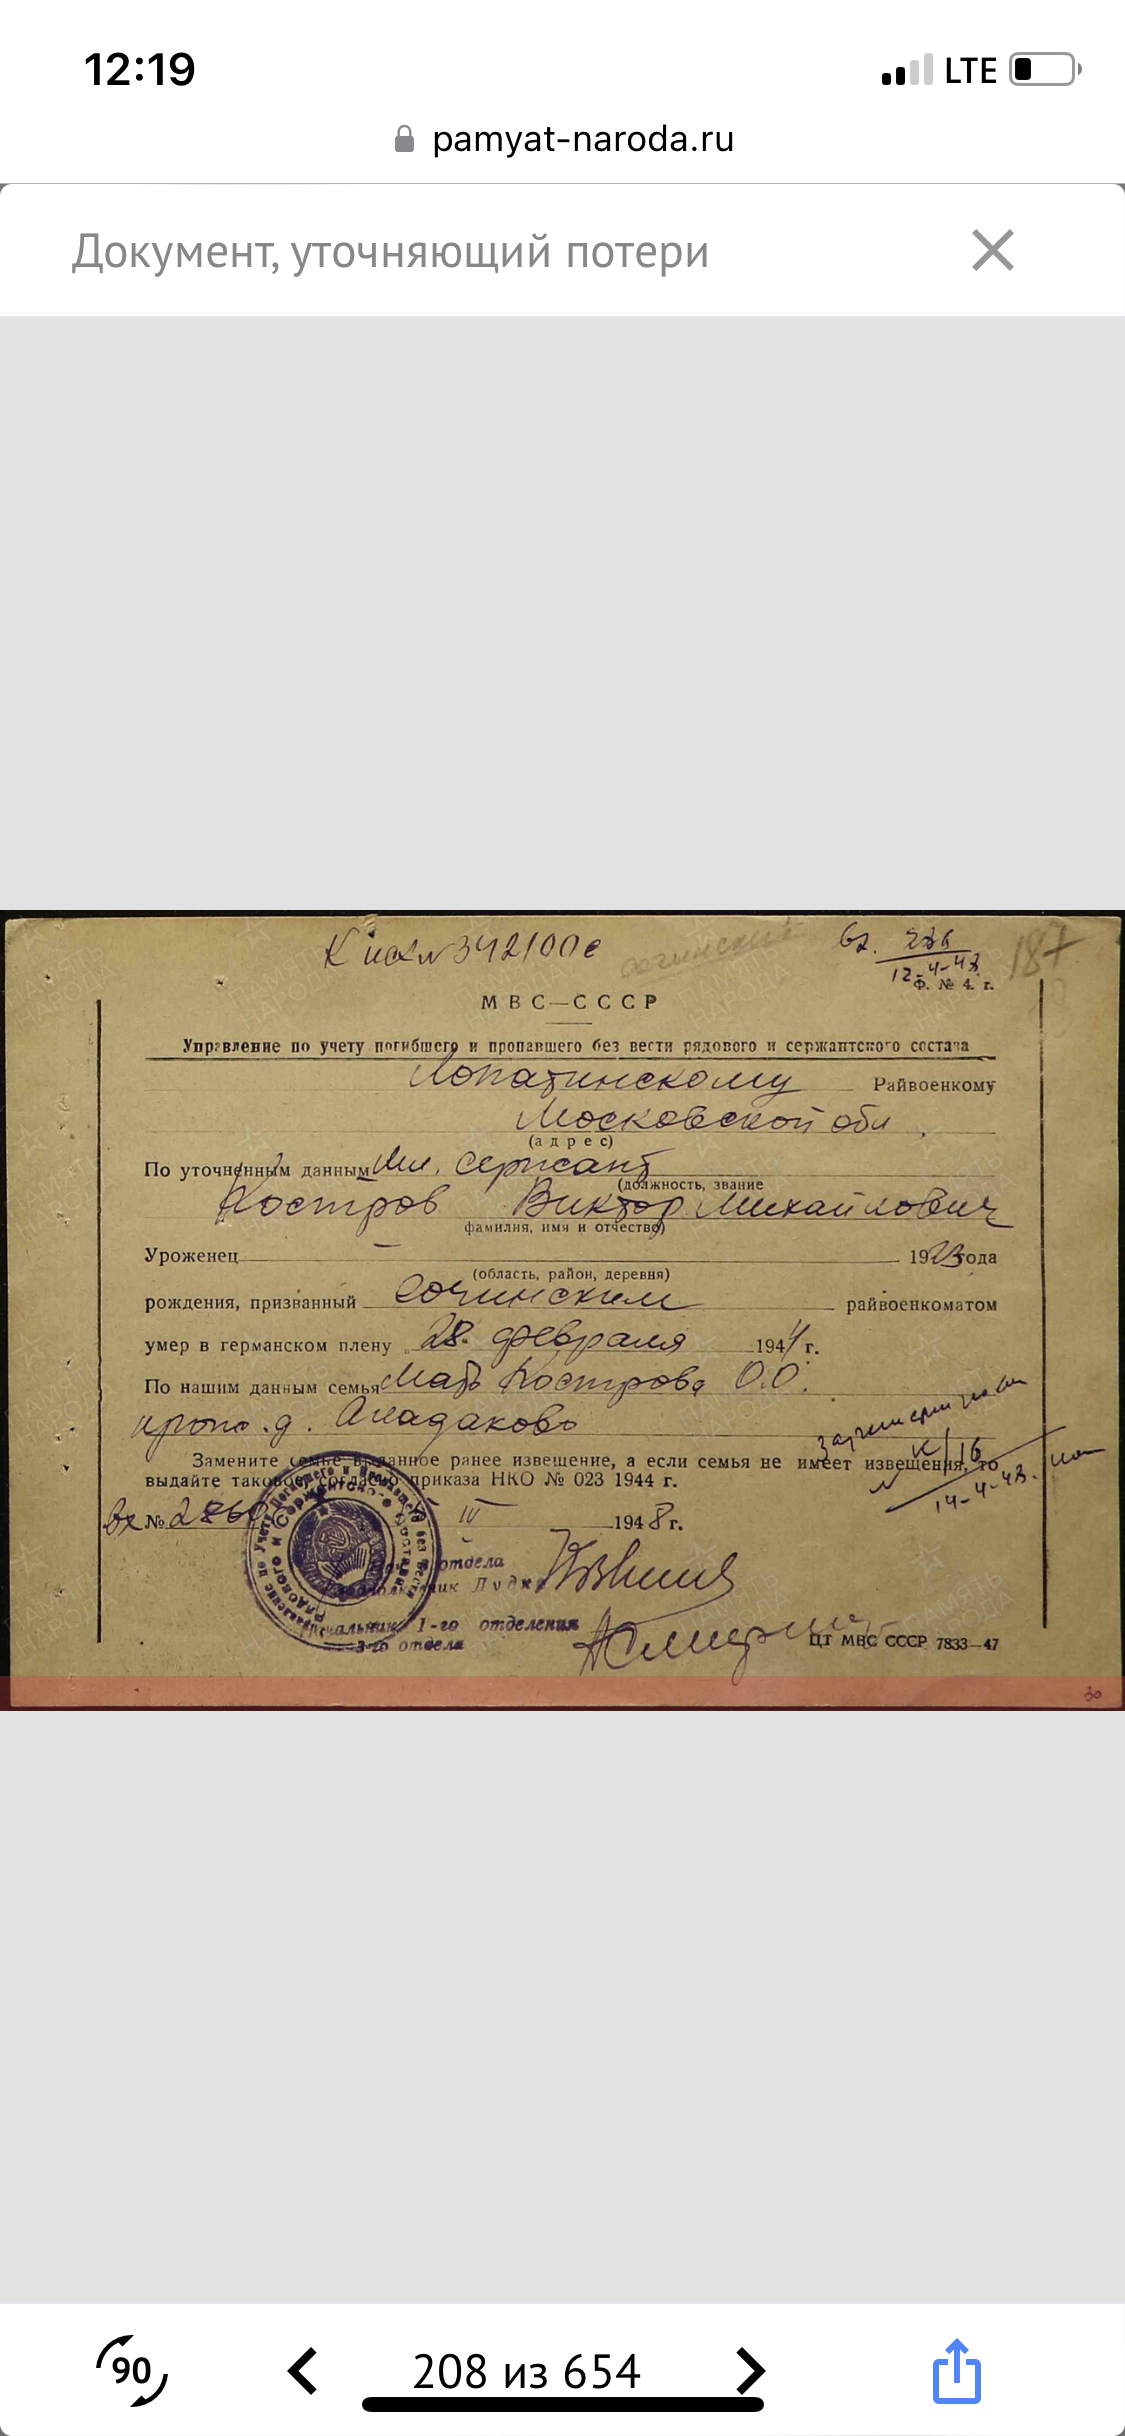 12:19 LTE
pamyat-naroda.ru
Документ, уточняющий потери
К исх № 342100с
сочинский
вх.
12-4-48
187
Ф. № 4. г.
МВС—СССР
Управление по учету погибшего и пропавшего без вести рядового и сержантского состава
Лопатинскому Райвоенкому
Московской обл
(адрес)
По уточненным данным Мл. сержант
(должность, звание
Костров Виктор Михайлович
фамилия, имя и отчество)
Уроженец — 1923 года
(область, район, деревня)
рождения, призванный Сочинским райвоенкоматом
умер в германском плену „28. февраля 1944 г.
По нашим данным семья Мать Кострова О.О.
д.
Замените семье выданное ранее извещение, а если семья не имеет извещения, то
выдайте таковое, согласно приказа НКО № 023 1944 г.
14-4-48.
№ IV 1948 г.
отдела
Начальник 1-го отделения
3-го отдела
ЦТ МВС СССР 7833—47
30
90
208 из 654